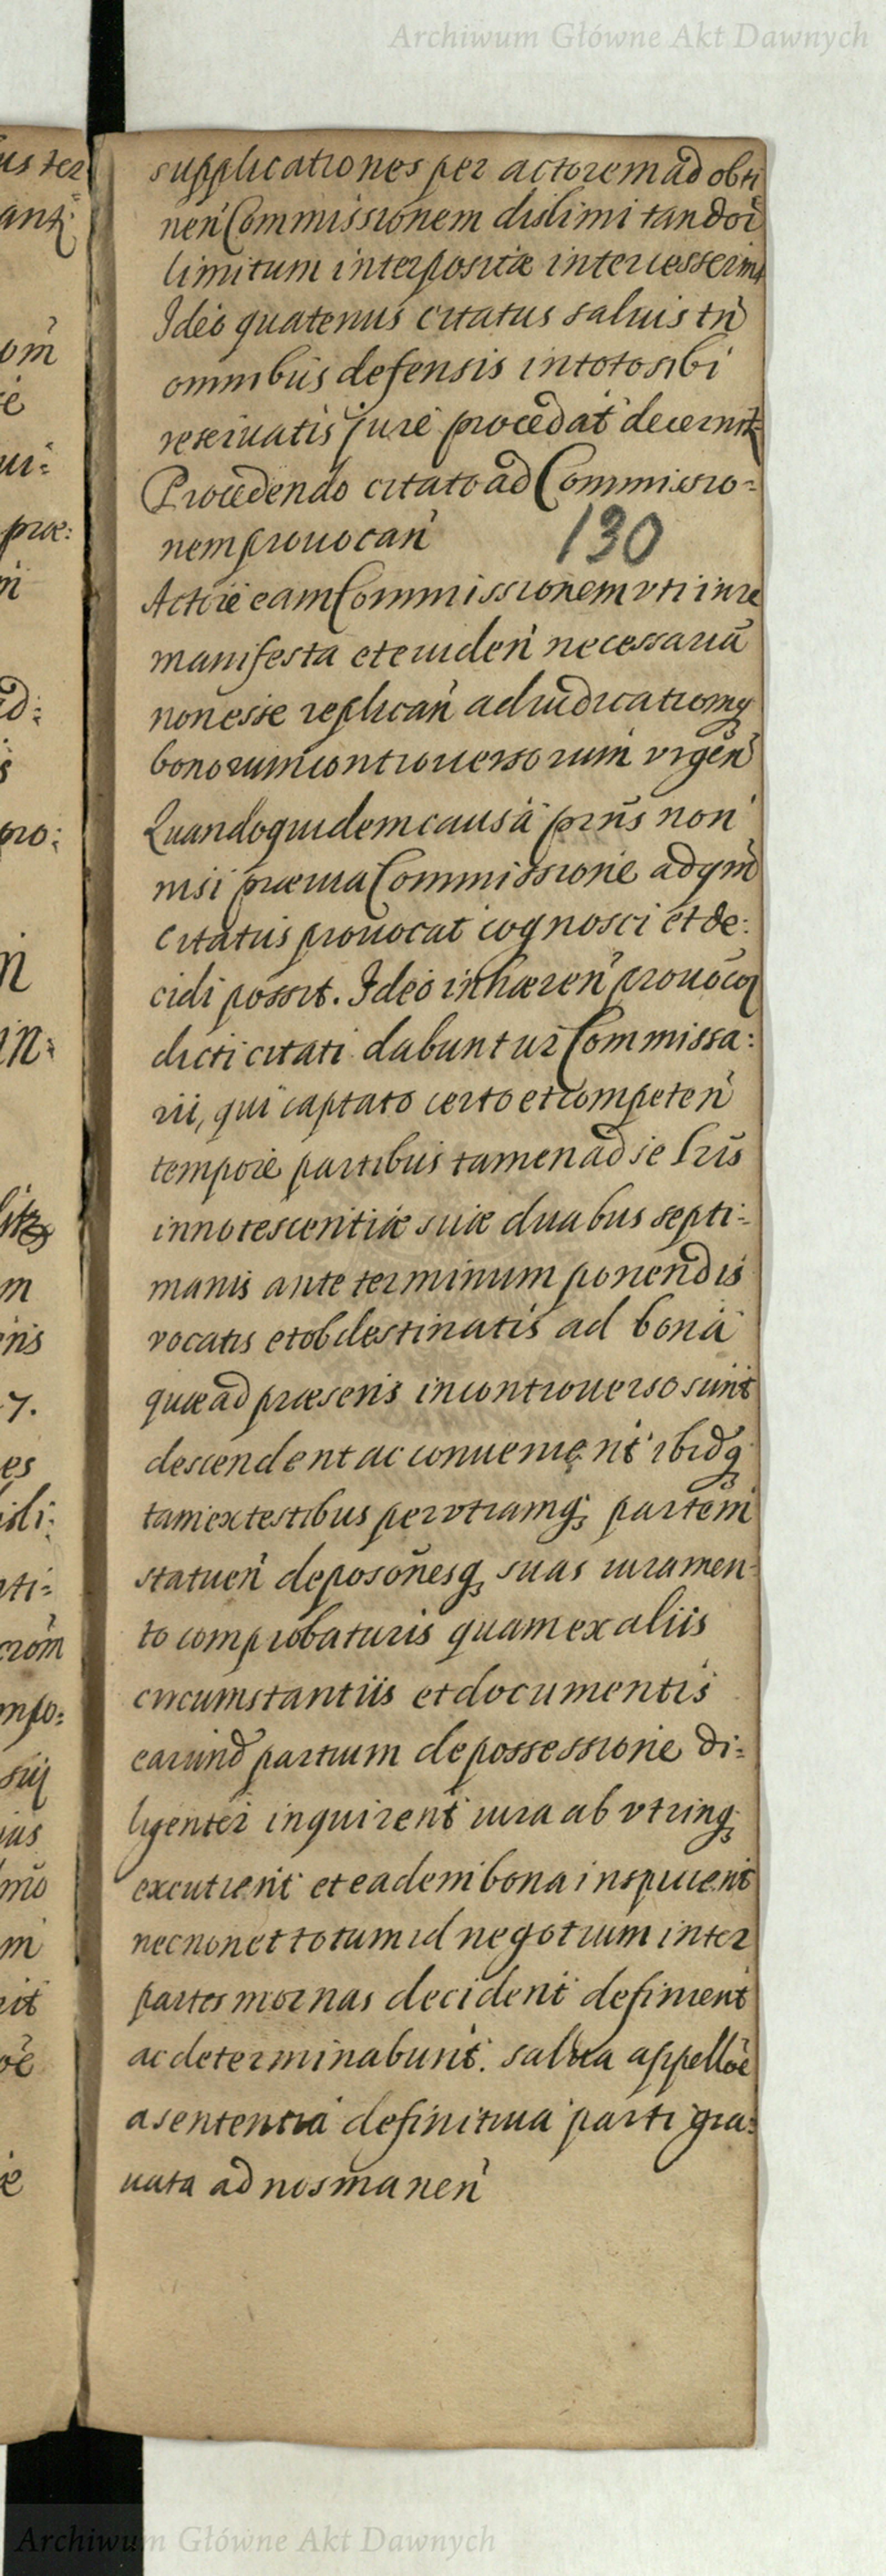 Archiwum Główne Akt Dawnych
supplicationes per actorem ad obti
nen Commissionem dislimitandor
limitum interpositæ intercesserint
Ideo quatenus citatus saluis tn
omnibus defensis in toto sibi
reseruatis jure procedat decernit
Procedendo citato ad Commissio=
nem prouocan
130
Actore eam Commissionem vti in re
manifesta et euiden necessariā
non esse replican adiudicationiq
bonorum controuersorum vrgen
Quandoquidem causa prns non
nisi præuia Commissione ad qm
citatus prouocat cognosci et de:
cidi possit. Ideo inhæren prouocoi
dicti citati dabuntur Commissa:
rii, qui captato certo et competen
tempore partibus tamen ad se Lris
innotescentiæ suæ duabus septi=
manis ante terminum ponendis
vocatis et ob destinatis ad bona
quæ ad præsens in controuerso sunt
descendent ac conuenient ibidq
tam ex testibus per vtramq partem
statuen deposōnesq suas iuramen=
to comprobaturis quam ex aliis
circumstantiis et documentis
earund partium de possessione di=
ligenter inquirent iura ab vtrinq
excutient et eadem bona inspicient
necnon et totum id negotium inter
partes mornas decident definient
ac determinabunt. salua appelloe
a sententia definitiua parti gra=
uata ad nos manen
Archiwum Główne Akt Dawnych